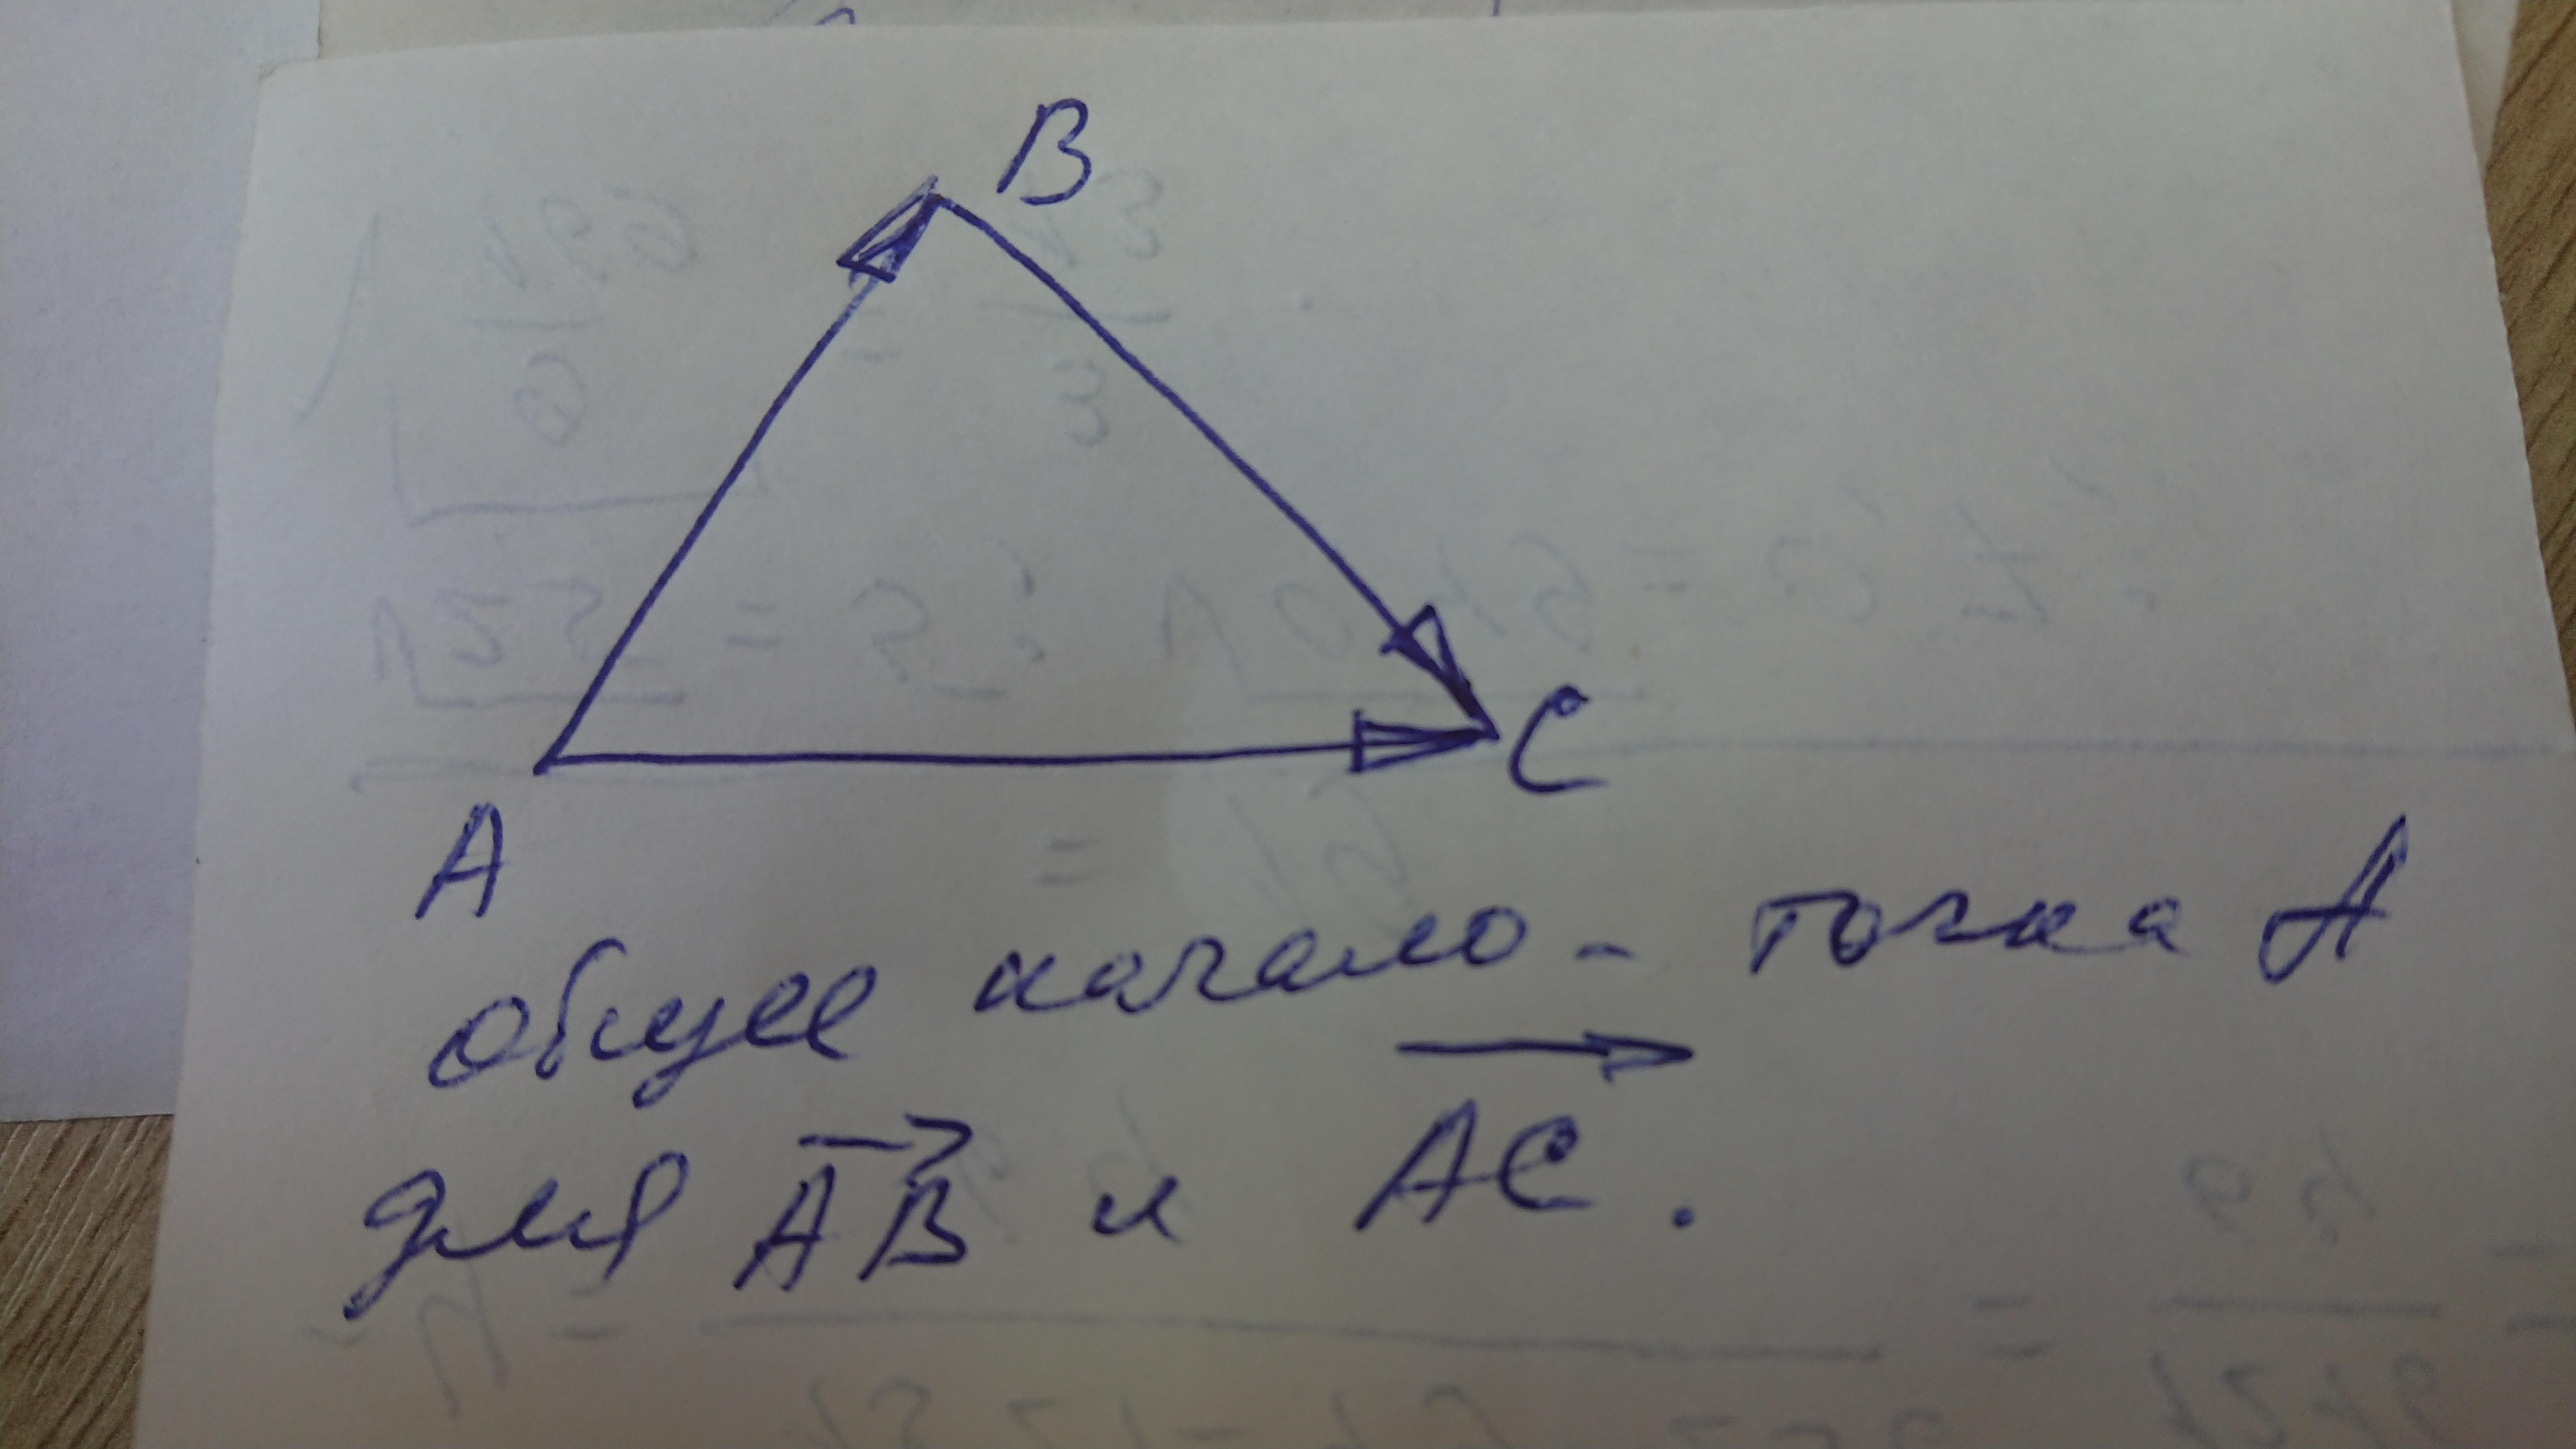 B
C
A
общее начало - точка A
для AB и AC.